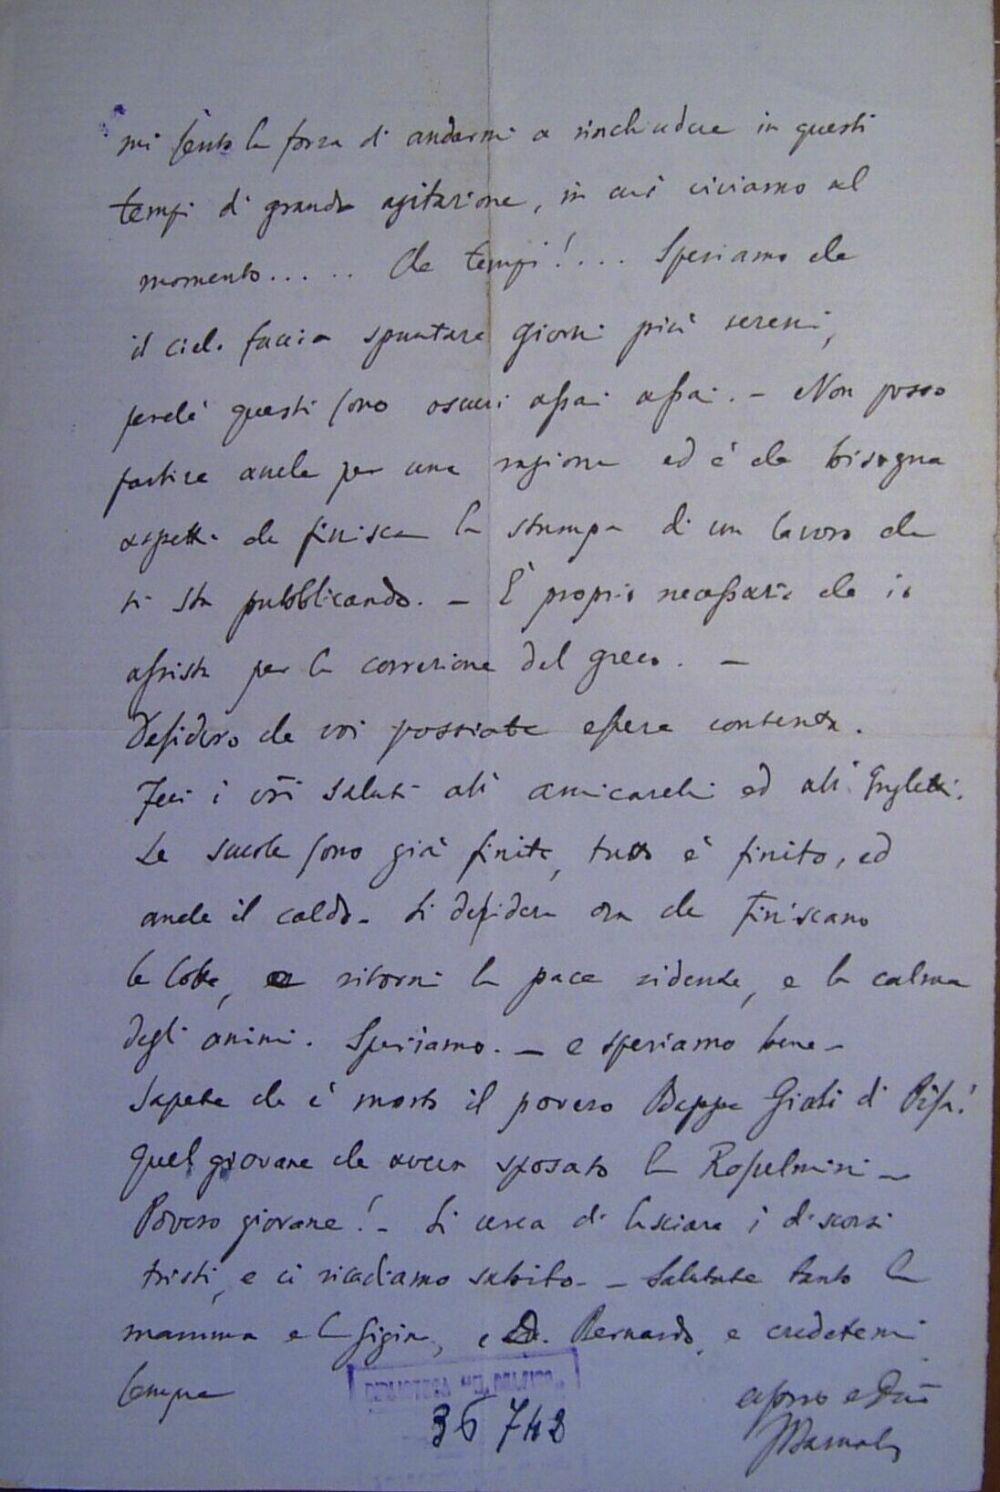 mi sento la forza di andarmi a rinchiudere in questi
tempi di grande agitazione, in cui viviamo al
momento..... Che tempi!... Speriamo che
il cielo faccia spuntare giorni più sereni,
perchè questi sono oscuri assai assai. - Non posso
partire anche per una ragione ed è che bisogna
aspetti che finisca la stampa di un lavoro che
si sta pubblicando. - È proprio necessario che io
assista per la correzione del greco. -
Desidero che voi possiate essere contenta.
Feci i vri saluti ali amicarelli ed ali
Le scuole sono già finite, tutto è finito, ed
anche il caldo - Si desidera ora che finiscano
le lotte, e ritorni la pace ridente, e la calma
degli animi. Speriamo. - e speriamo bene -
Sapete che è morto il povero Beppe di Pisa!
quel giovane che aveva sposato la Rosselmini -
Povero giovane! - Si cerca di lasciare i discorsi
tristi, e ci ricadiamo subito - - Salutate tanto la
mamma e la Gigia, e D. Bernardo, e credetemi
sempre
BIBLIOTECA
affmo
36742